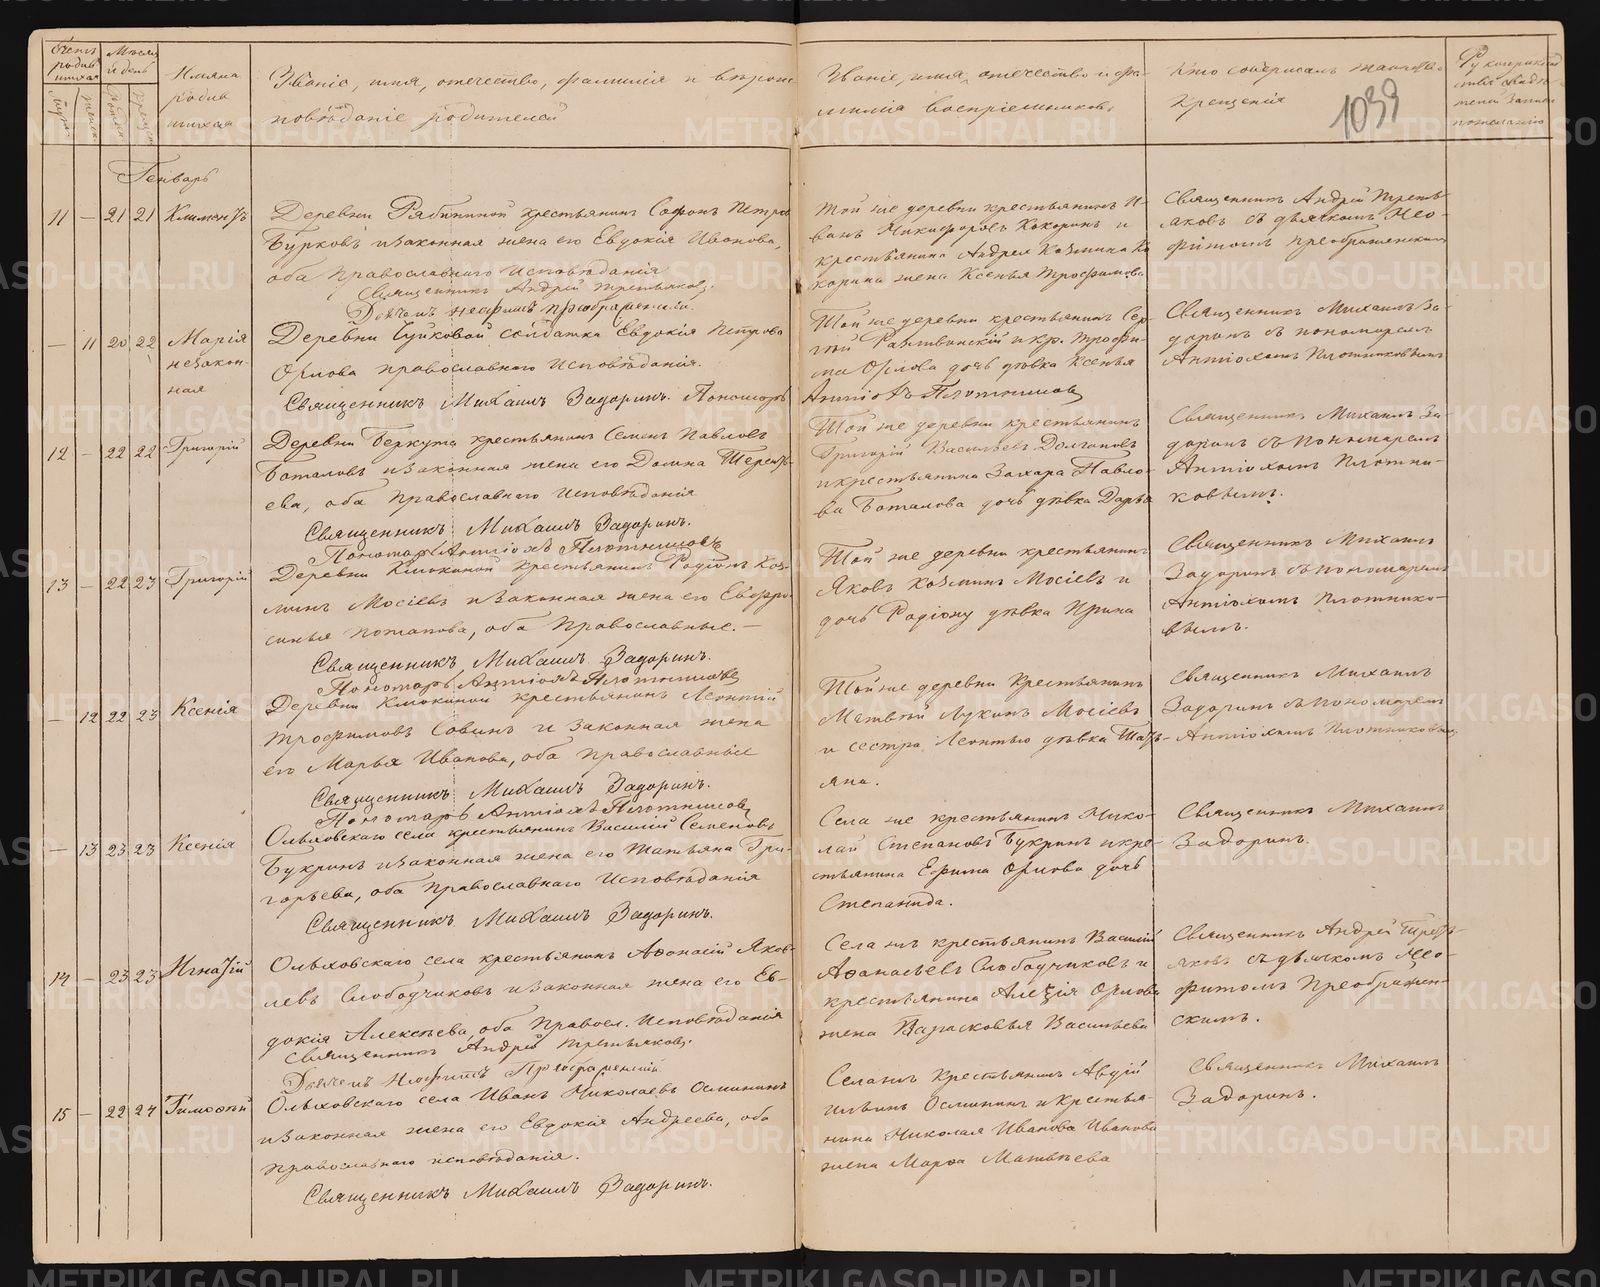 Счетъ родив
шихся
Мѣсяц
и день
Имяна
родив
шихся
Званіе, имя, отечество, фамилія и вѣроис
повѣданіе родителей
Званіе, имя, отечество и фа-
милія воспріемниковъ
Кто совершалъ таинство
Крещенія
1039
Генварь
11 — 21 21 Климентъ
Деревни Рябининой крестьянинъ Софонъ Петров
Бурковъ и законная жена его Евдокія Иванова,
оба православнаго исповѣданія
Священникъ Андрей Третьяковъ.
Дьячекъ Неофитъ Преображенскій.
Той же деревни крестьянинъ И-
ванъ Никифоровъ Кокоринъ и
крестьянина Андрея Козмина Ко
корина жена Ксенья Трофимова
Священникъ Андрей Треть
яковъ съ дьячкомъ Нео-
фитомъ Преображенскимъ
— 11 20 22 Марія
незакон-
ная
Деревни Чуйковой солдатка Евдокія Петрова
Орлова православнаго исповѣданія.
Священникъ Михаилъ Задоринъ. Пономарь Антіохъ Плотниковъ
Той же деревни крестьянинъ Сер-
гѣй и кр. Трофи-
ма Орлова дочь дѣвка Ксенья
Священникъ Михаилъ За-
доринъ съ пономаремъ
Антіохомъ Плотниковымъ
12 — 22 22 Григорій
Деревни Беркута крестьянинъ Семенъ Павловъ
Боталовъ и законная жена его Домна Терентъ-
ева, оба православнаго исповѣданія
Священникъ Михаилъ Задоринъ.
Пономарь Антіохъ Плотниковъ
Той же деревни крестьянинъ
Григорій Васильевъ Долгановъ
и крестьянина Захара Павло-
ва Боталова дочь дѣвка Дарья
Священникъ Михаилъ За-
доринъ съ пономаремъ
Антіохомъ Плотни-
ковымъ.
13 — 22 23 Григорій
Деревни Клюкиной крестьянинъ Родіонъ Коз-
минъ Мосіевъ и законная жена его Евфро-
синья Потапова, оба православные.—
Священникъ Михаилъ Задоринъ.
Пономарь Антіохъ Плотниковъ
Той же деревни крестьянинъ
Яковъ Козминъ Мосіевъ и
дочь Родіону дѣвка Ирина
Священникъ Михаилъ
Задоринъ съ пономаремъ
Антіохомъ Плотнико-
вымъ.
— 12 22 23 Ксенія
Деревни Клюкиной крестьянинъ Леонтій
Трофимовъ Совинъ и законная жена
его Марья Иванова, оба православные
Священникъ Михаилъ Задоринъ.
Пономарь Антіохъ Плотниковъ
Той же деревни крестьянинъ
Матвѣй Лукинъ Мосіевъ
и сестра Леонтью дѣвка Тать-
яна.
Священникъ Михаилъ
Задоринъ съ пономаремъ
Антіохомъ Плотниковымъ
— 13 23 23 Ксенія
Ольховскаго села крестьянинъ Василій Семеновъ
Букринъ и законная жена его Татьяна Гри-
горьева, оба православнаго исповѣданія
Священникъ Михаилъ Задоринъ.
Села же крестьянинъ Нико-
лай Степановъ Букринъ и кре-
стьянина Ефима Орлова дочь
Степанида.
Священникъ Михаилъ
Задоринъ.
14 — 23 23 Игнатій
Ольховскаго села крестьянинъ Афонасій Яков-
левъ Слободчиковъ и законная жена его Ев-
докія Алексѣева, оба правосл. исповѣданія
Священникъ Андрей Третьяковъ.
Дьячекъ Неофитъ Преображенскій
Села же крестьянинъ Василій
Афанасьевъ Слободчиковъ и
крестьянина Алексія Орлова
жена Парасковья Васильева
Священникъ Андрей Треть-
яковъ съ дьячкомъ Нео-
фитомъ Преображен-
скимъ.
15 — 22 24 Тимофѣй
Ольховскаго села Иванъ Николаевъ Осминин
и законная жена его Евдокія Андреева, оба
православнаго исповѣданія.
Священникъ Михаилъ Задоринъ.
Села же крестьянинъ Авдій
Ильинъ Осмининъ и крестья-
нина Николая Иванова Иванова
жена Марфа Матвѣева
Священникъ Михаилъ
Задоринъ.
METRIKI.GASO-URAL.RU